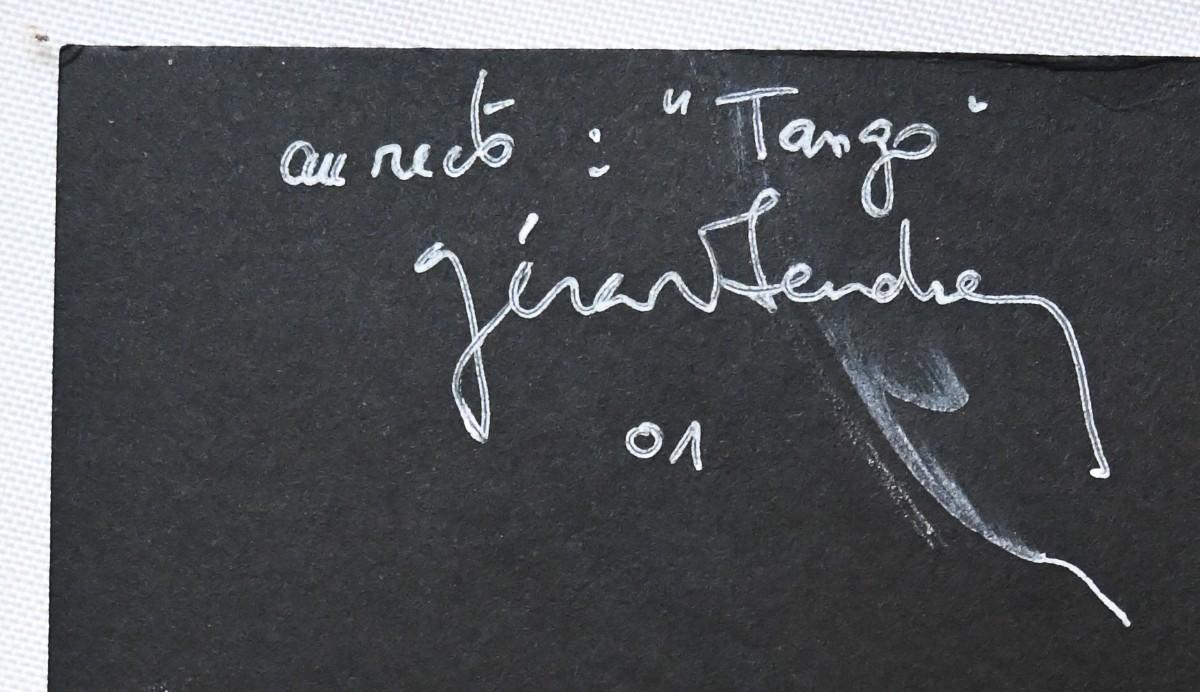 au recto : "Tango"
gérard Tendre
01